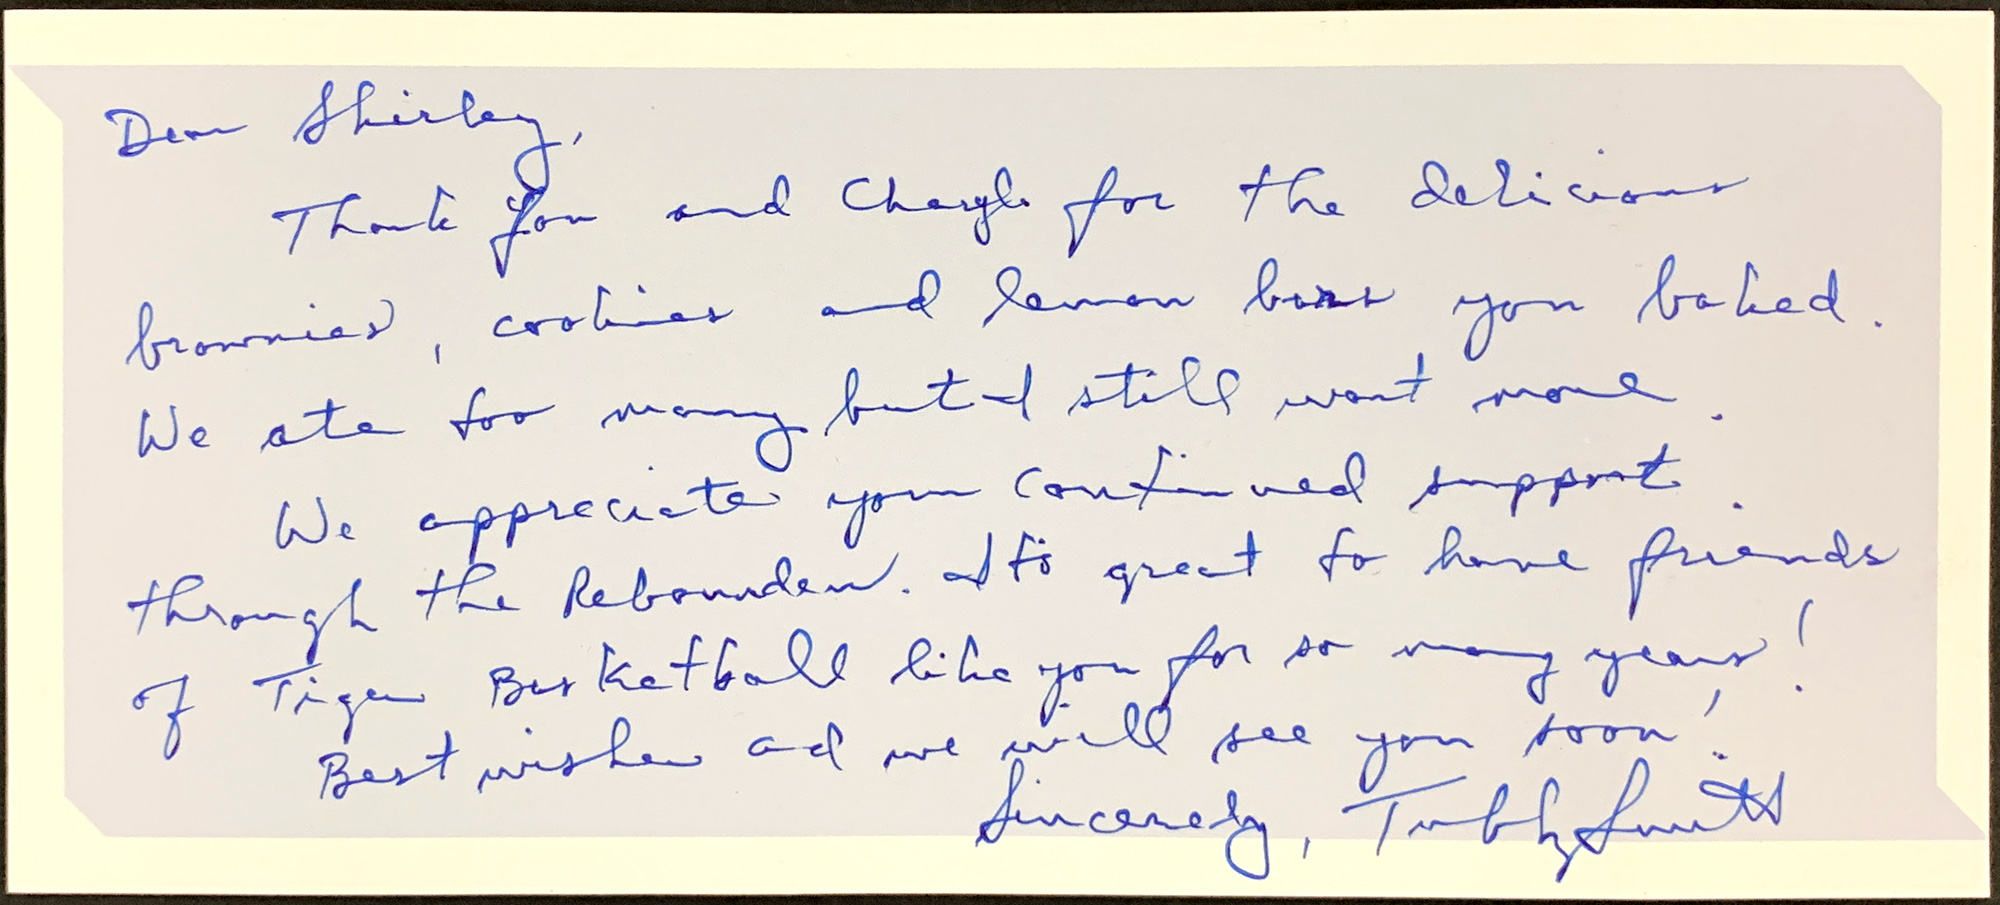 Dear Shirley,
Thank you and for the delicious
brownies, cookies and lemon bars you baked.
We ate too many but I still want more.
We appreciate your continued support
through the Rebounders. It's great to have friends
of Tiger Basketball like you for so many years!
Best wishes and we will see you soon!
Sincerely, Tubby Smith